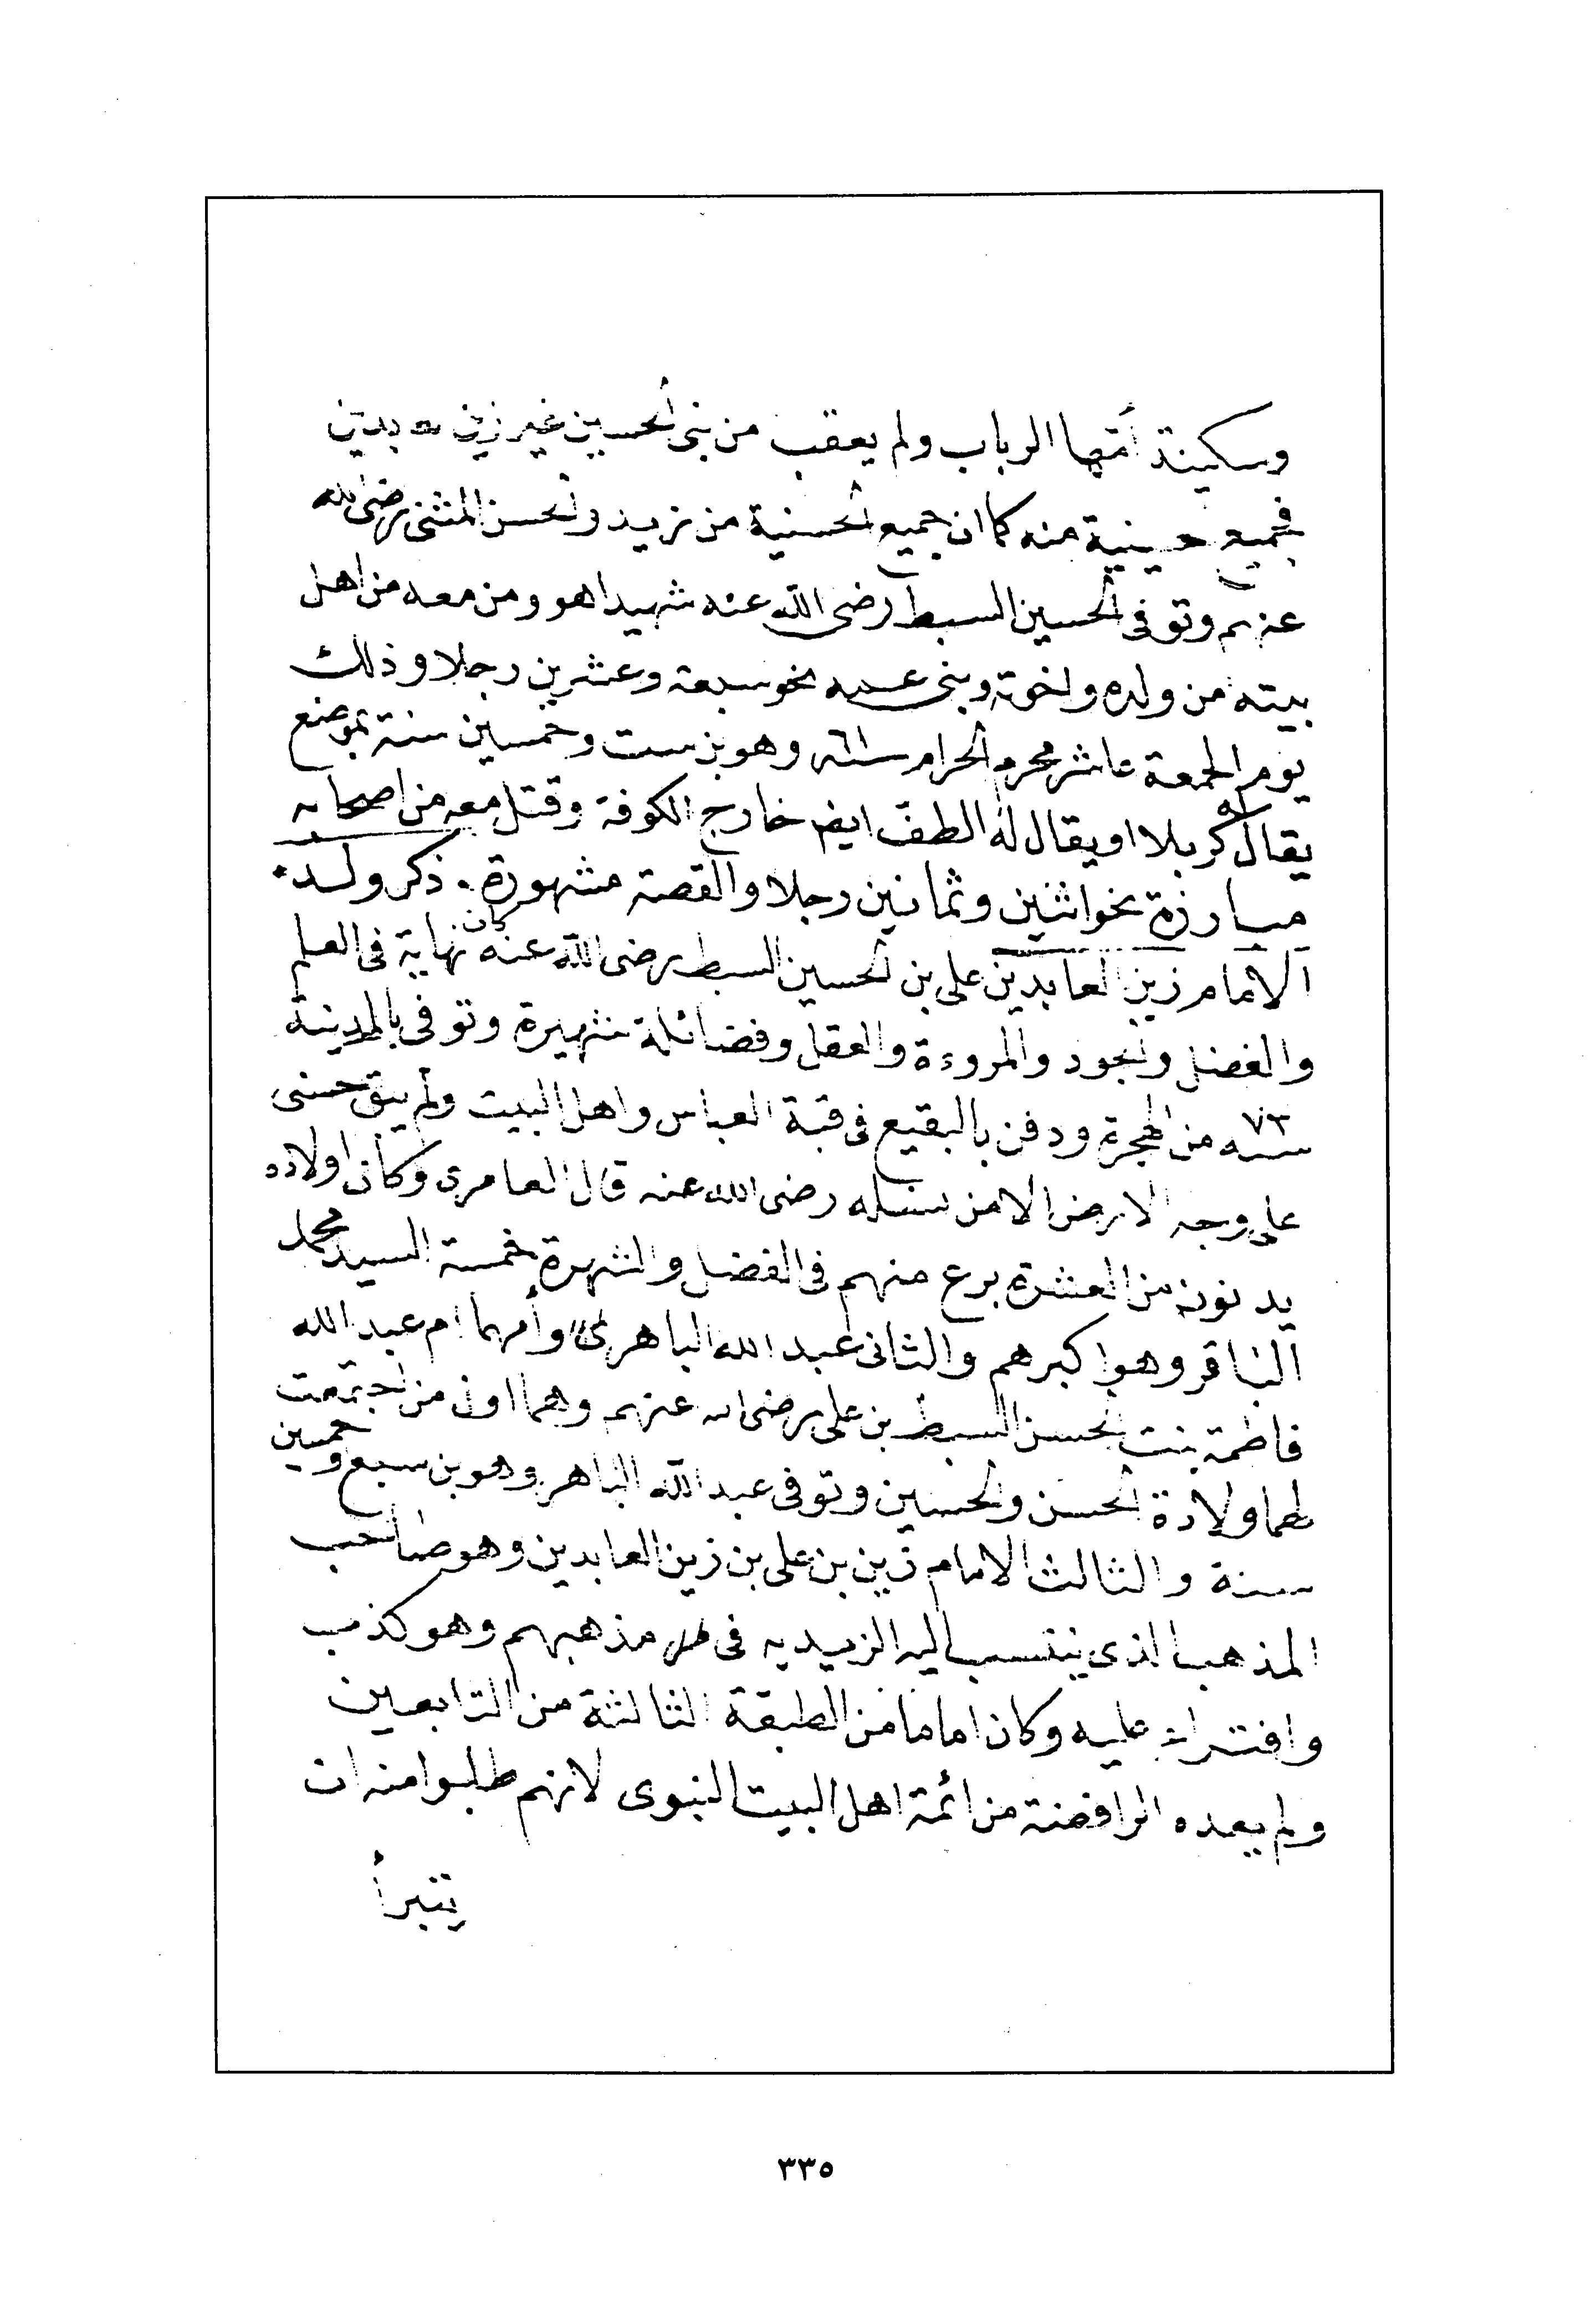 وسكينة أمها الرباب ولم يعقب من بني الحسين غير زين بدين
فجميع حسينية منه كما ان جميع الحسنية من زيد والحسن المثنى رضى الله
عنهم وتوفى الحسين السبط رضى الله عنه شهيدا هو ومن معه من اهل
بيته من ولده واخوته وبنى عمه نحو سبعة وعشرين رجلا وذلك
يوم الجمعة عاشر محرم الحرام سنة ٦١ وهو بن ست وخمسين سنة بموضع
يقال له كربلا او يقال له الطف ايضا خارج الكوفة وقتل معه من اصحابه
مبارزة نحو اثنين وثمانين رجلا والقصة مشهورة . ذكر ولده
الامام زين العابدين على بن الحسين السبط رضى الله عنه كان نهاية فى العلم
والفضل والجود والمروءة والعقل وفضائله شهيرة وتوفى بالمدينة
سنة ٧٣ من الهجرة ودفن بالبقيع فى قبة العباس واهل البيت ولم يبق حسنى
على وجه الارض الا من نسله رضى الله عنه قال العامرى وكان اولاده
يدنون من العشرة برع منهم فى الفضل والشهرة خمسة السيد محمد
الباقر وهو اكبرهم والثانى عبد الله الباهر وأمهما ام عبد الله
فاطمة بنت الحسن السبط بن على رضى الله عنهم وهما اول من اجتمعت
لهما ولادة الحسن والحسين وتوفى عبد الله الباهر وهو بن سبع وخمسين
سنة والثالث الامام زين بن على بن زين العابدين وهو صاحب
المذهب الذى ينتسب اليه الزيدية فى مذهبهم وهو كذب
وافتراء عليه وكان اماما من الطبقة الثالثة من التابعين
ولم يعده الرافضة من ائمة اهل البيت النبوى لانهم طلبوا منه ان
يتبرأ
٣٣٥